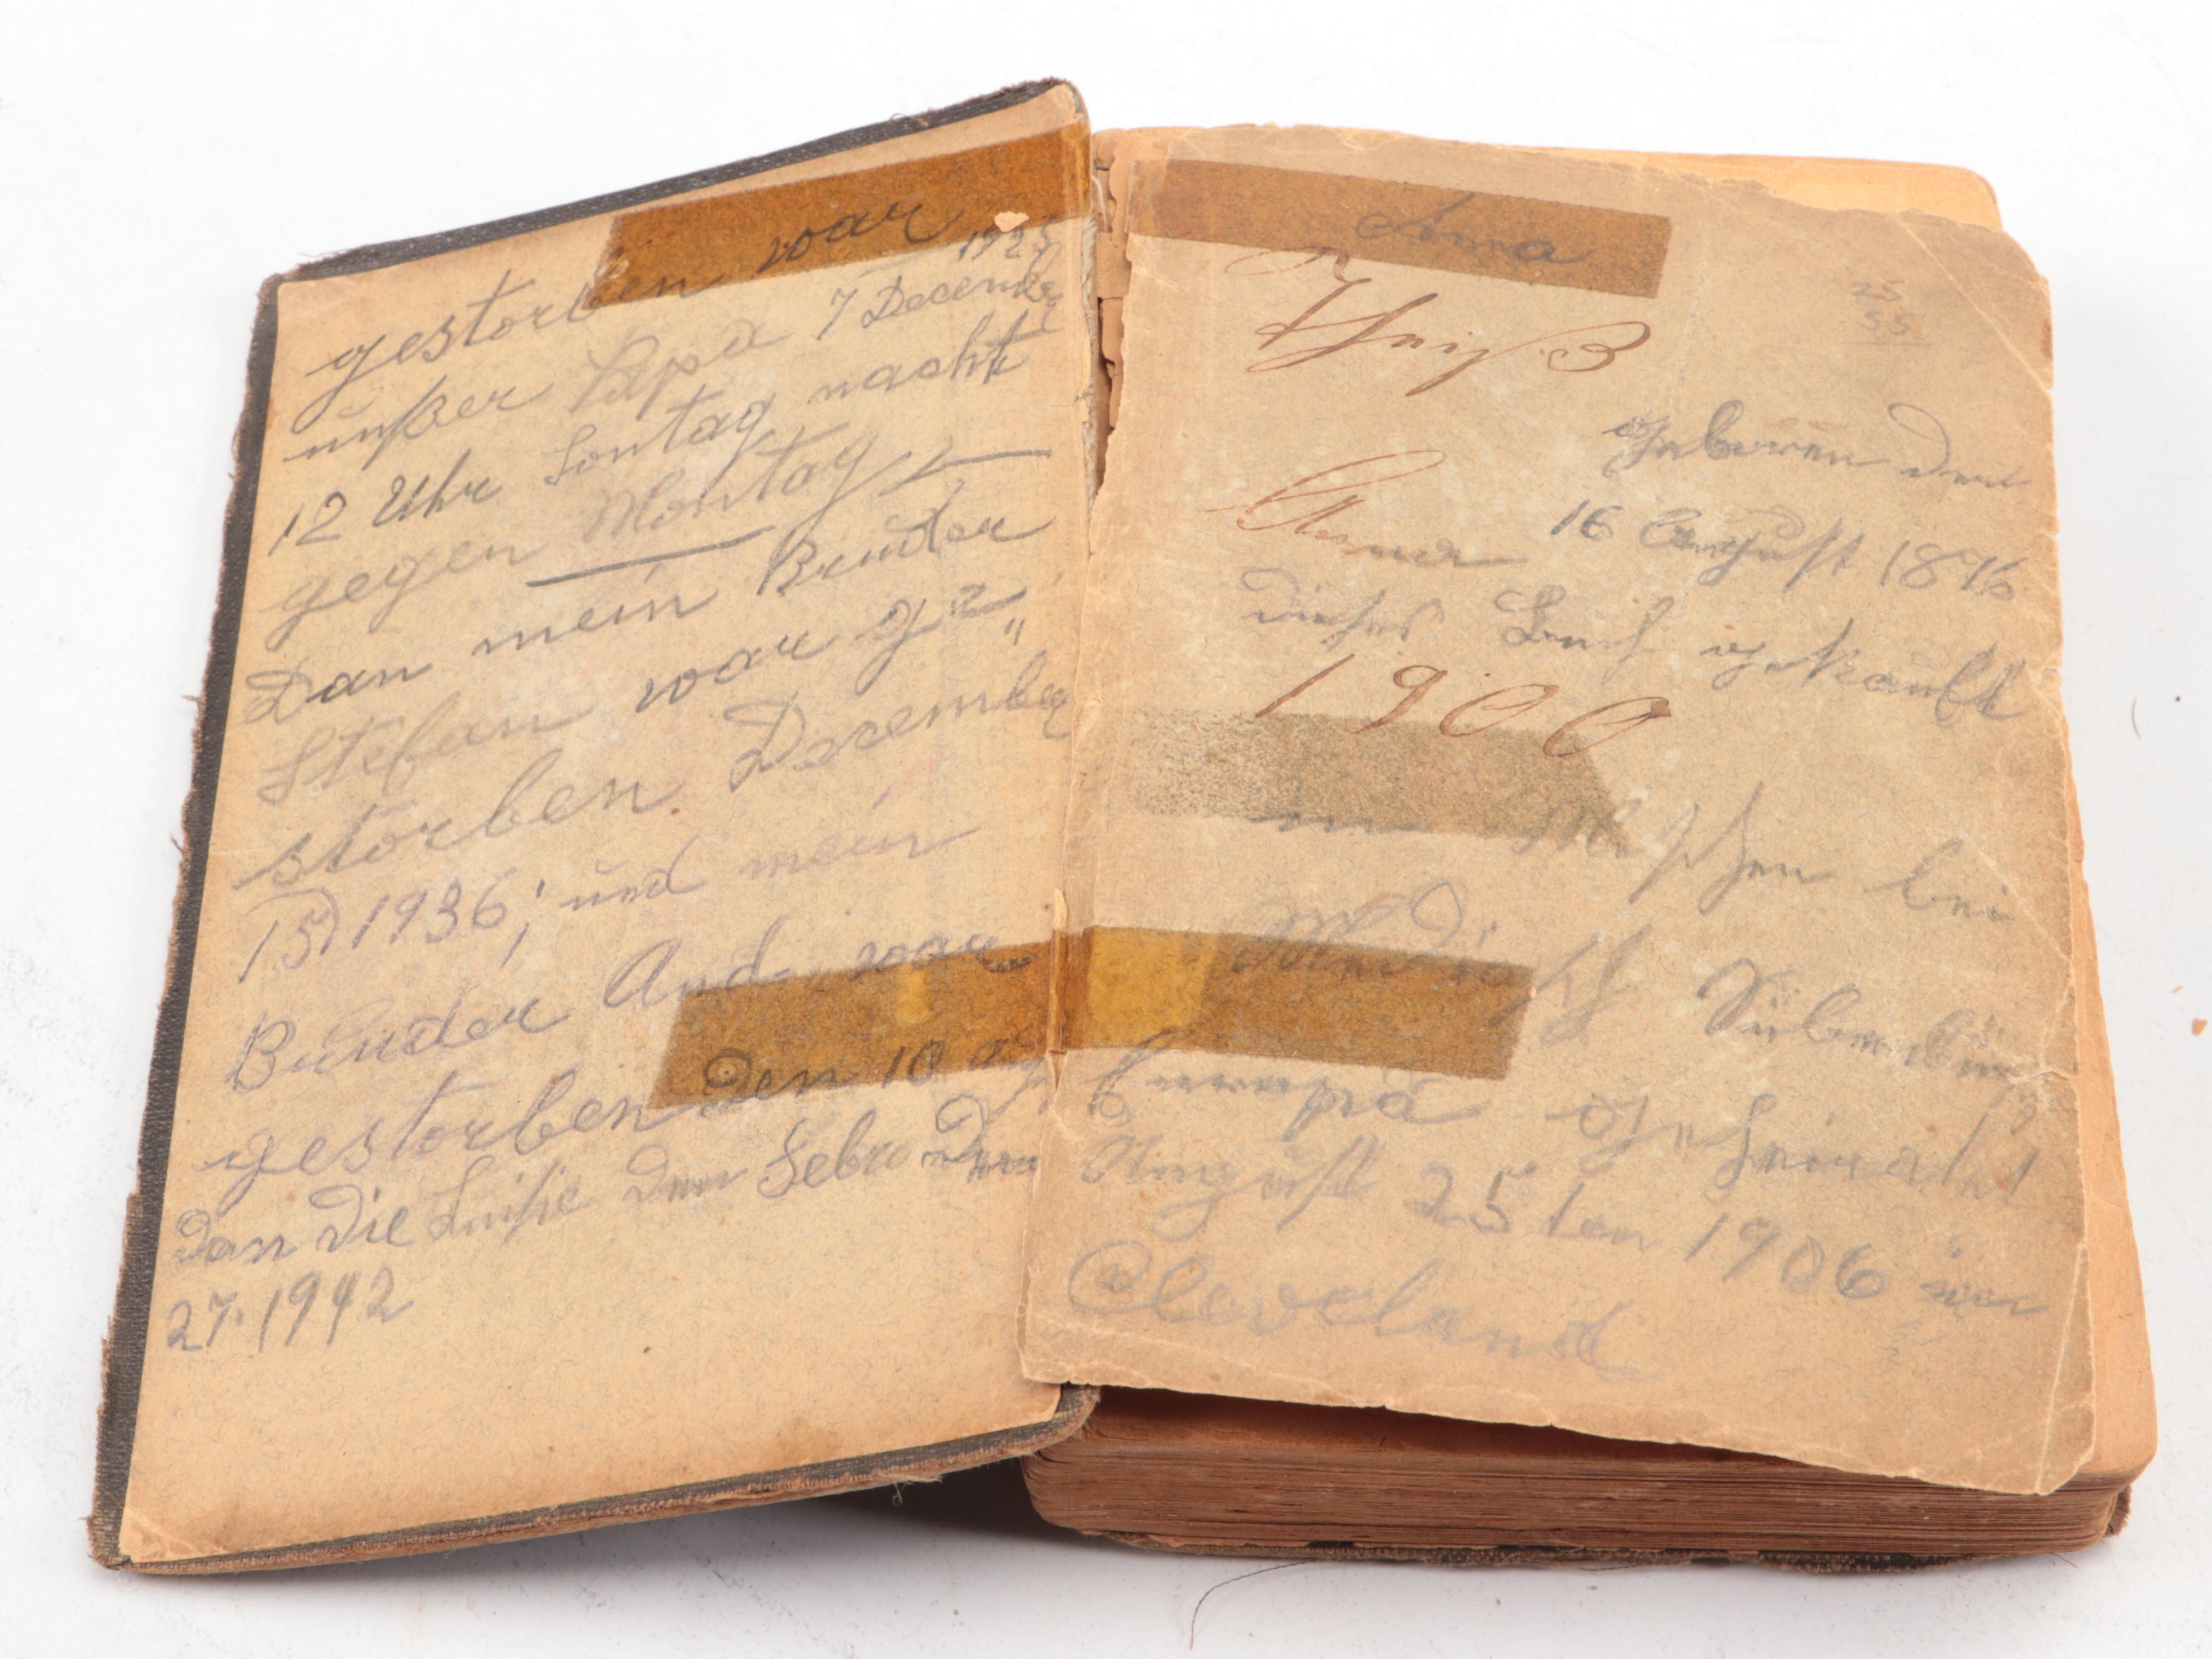 gestorben war
1925
unßer Papa 7 Decemb
12 Uhr Sontag nacht
gegen Montag
Dan mein Bruder
Stefan war ge=
storben Dezember
15, 1936, und mein
Bruder And war
gestorben den 10
Dan die Luiße den Febr
27. 1942
Anna
Theiß
25
55
geboren den
Anna 16 August 1876
dieses Buch gekauft
1900
in Meschen bei
Medisch Siebenbürg
Europa geheirathet
August 25 ten 1906 in
Cleveland